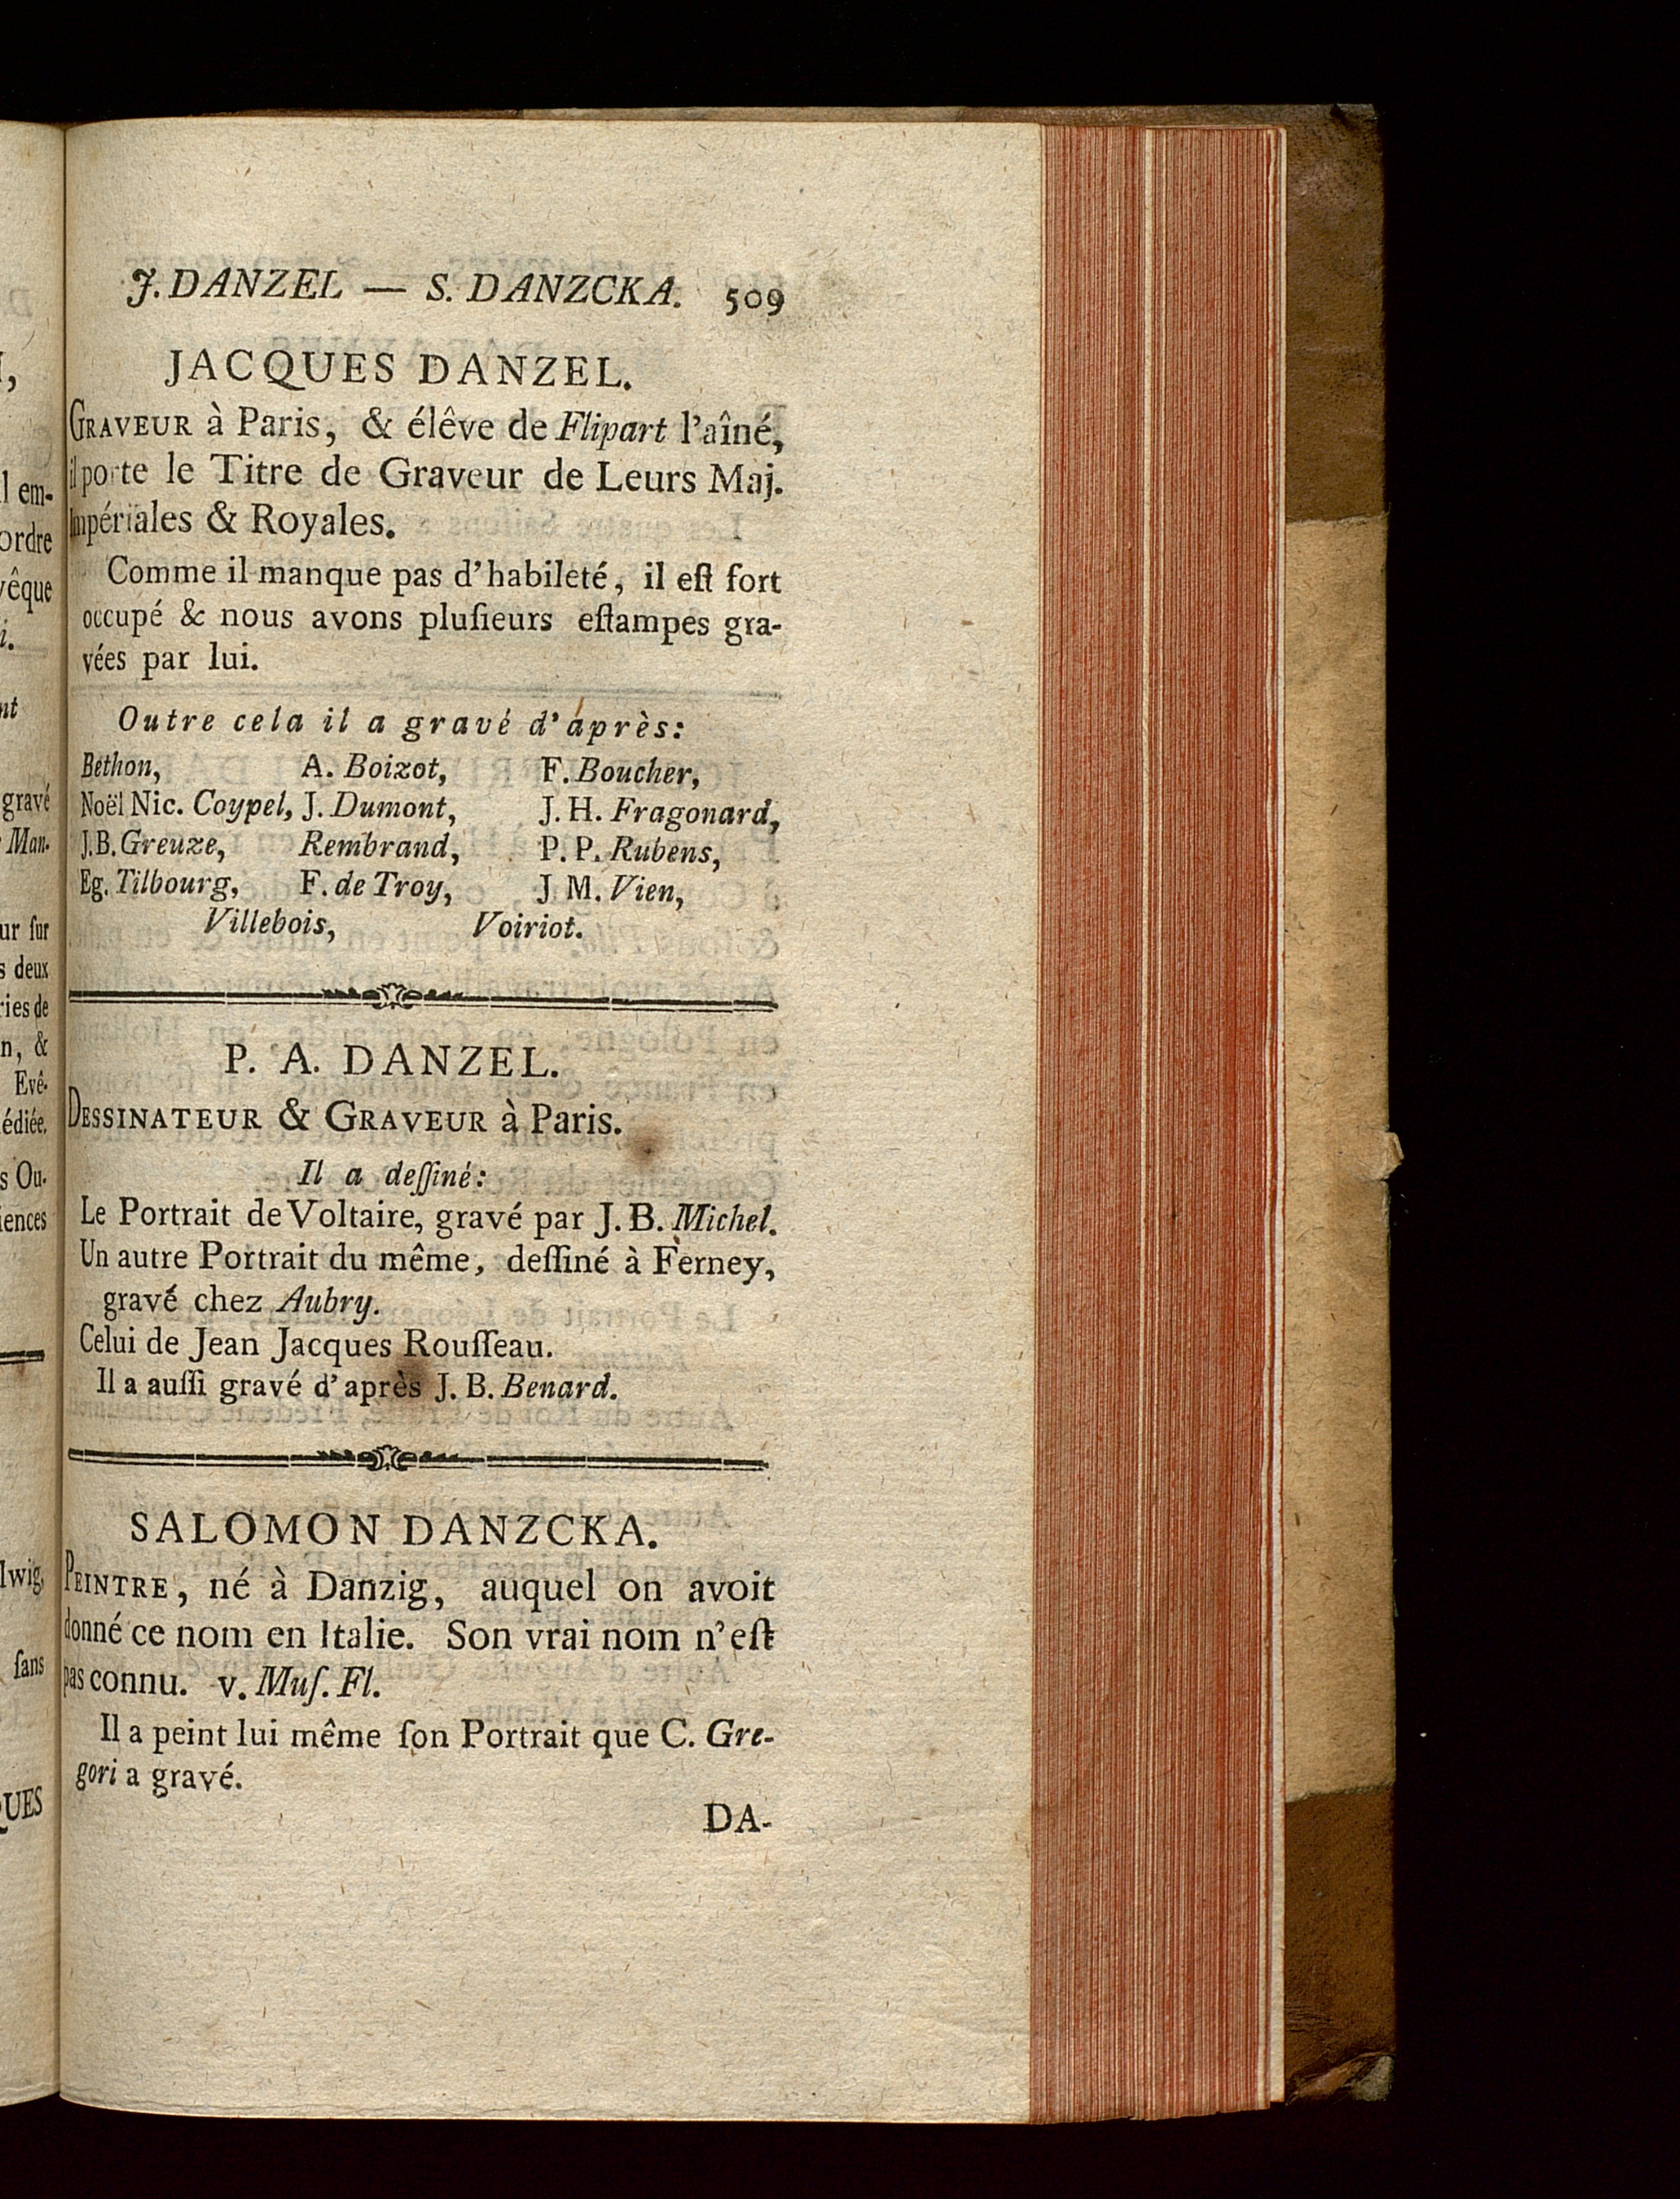 J. DANZEL — S. DANZCKA. 509
JACQUES DANZEL.
GRAVEUR à Paris, & élêve de Flipart l'aîné,
il porte le Titre de Graveur de Leurs Maj.
Impériales & Royales.
Comme il manque pas d'habileté, il eſt fort
occupé & nous avons pluſieurs eſtampes gra-
vées par lui.
Outre cela il a gravé d'après:
Bethon, A. Boizot, F. Boucher,
Noël Nic. Coypel, J. Dumont, J. H. Fragonard,
J. B. Greuze, Rembrand, P. P. Rubens,
Eg. Tilbourg, F. de Troy, J M. Vien,
Villebois, Voiriot.
P. A. DANZEL.
DESSINATEUR & GRAVEUR à Paris.
Il a deſſiné:
Le Portrait de Voltaire, gravé par J. B. Michel.
Un autre Portrait du même, deſſiné à Ferney,
gravé chez Aubry.
Celui de Jean Jacques Rouſſeau.
Il a auſſi gravé d'après J. B. Benard.
SALOMON DANZCKA.
PEINTRE, né à Danzig, auquel on avoit
donné ce nom en Italie. Son vrai nom n'eſt
pas connu. v. Muſ. Fl.
Il a peint lui même ſon Portrait que C. Gre-
gori a gravé.
DA-
em-
ordre
vêque
i.
nt
gravé
Man-
ur ſur
s deux
ries de
n, &
Evê-
édiée.
s Ou-
iences
lwig,
ſans
QUES